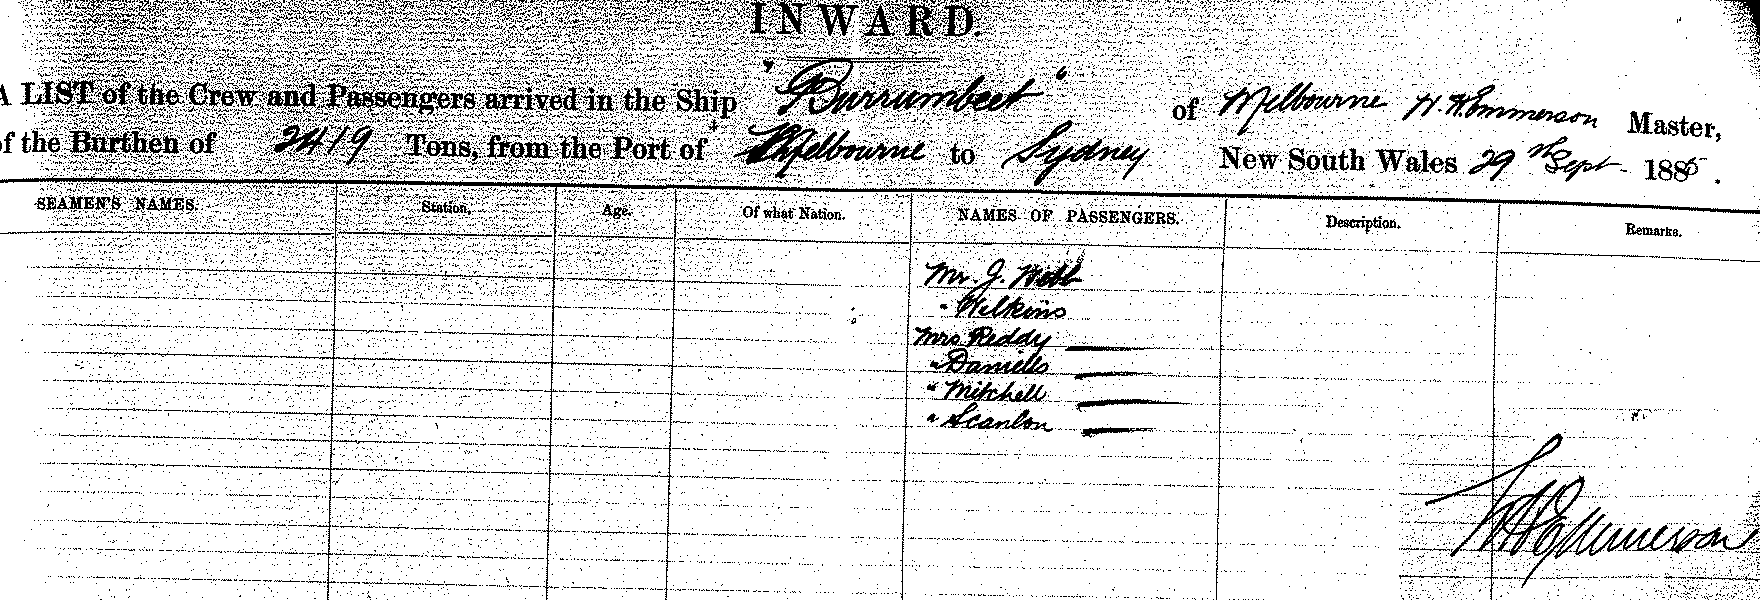 INWARD.
A LIST of the Crew and Passengers arrived in the Ship "Burrumbeet" of Melbourne H. K. Emmerson Master,
of the Burthen of 2419 Tons, from the Port of Melbourne to Sydney New South Wales 29th Sept. 1885.
SEAMEN'S NAMES. Station. Age. Of what Nation. NAMES OF PASSENGERS. Description. Remarks.
Mr. J. Webb
" Wilkins
Mrs Reddy
" Daniells
" Mitchell
" Scanlon
Emmerson